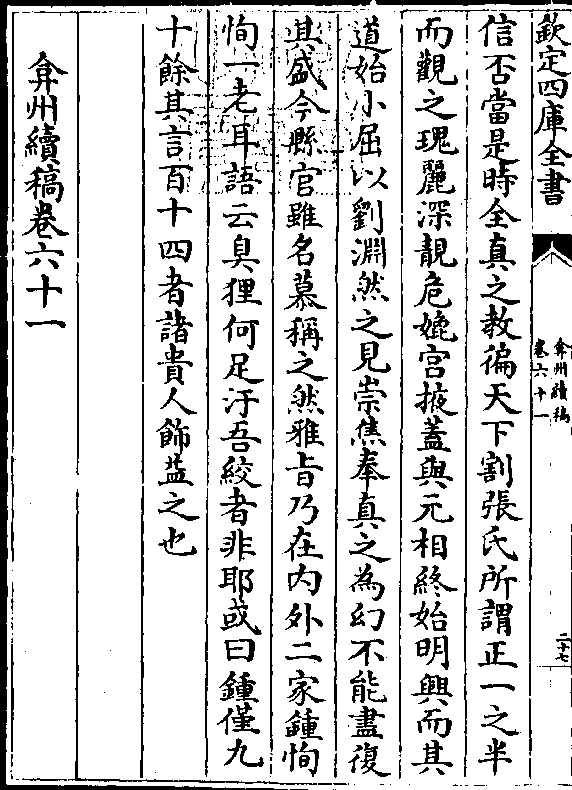 欽定四庫全書
弇州續稿
卷六十一
二十七
信否當是時全真之教徧天下割張氏所謂正一之半
而觀之瑰麗深靚危㜻宫掖蓋與元相終始明興而其
道始小屈以劉淵然之見崇焦奉真之為幻不能盡復
其盛今縣官雖名慕稱之然雅㫖乃在内外二家鍾恂
恂一老耳語云臭狸何足汙吾絞者非耶或曰鍾僅九
十餘其言百十四者諸貴人飾益之也
弇州續稿卷六十一